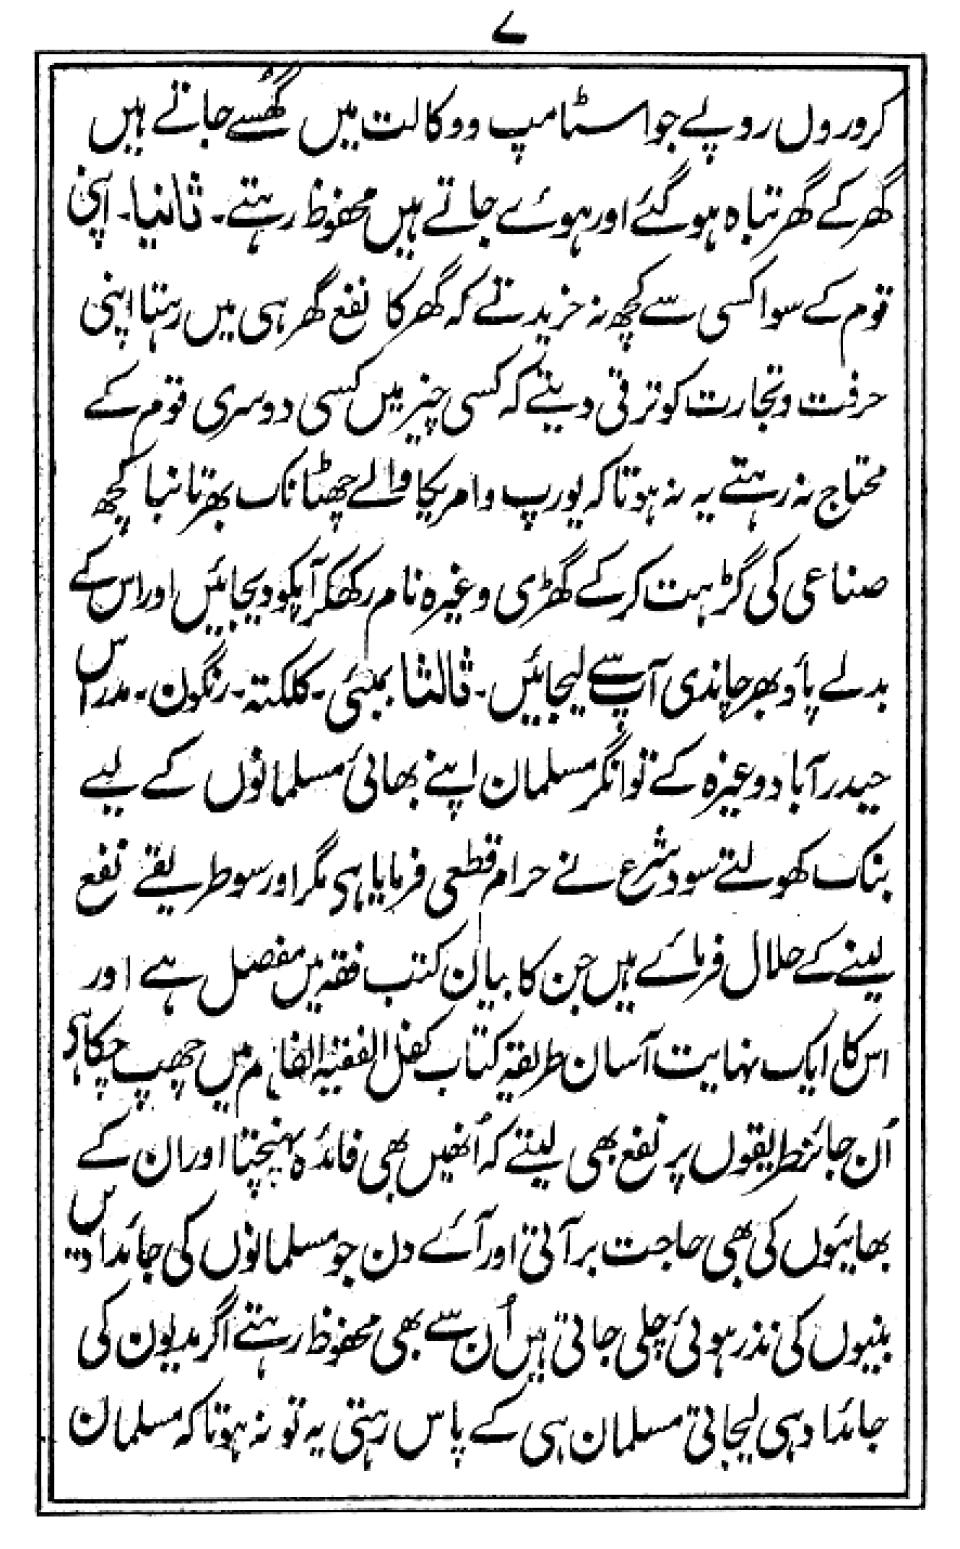 ۷
کروروں روپے جو اسٹامپ و وکالت میں گھُسے جاتے ہیں
گھر کے گھر تباہ ہو گئے اور ہوئے جاتے ہیں محفوظ رہتے۔ ثانیا۔ اپنی
قوم کے سوا کسی سے کچھ نہ خریدتے کہ گھر کا نفع گھر ہی میں رہتا اپنی
حرفت و تجارت کو ترقی دیتے کہ کسی چیز میں کسی دوسری قوم کے
محتاج نہ رہتے یہ نہ ہوتا کہ یورپ و امریکا والے چھٹانک بھر تانبا کچھ
صناعی کی گڑہت کرکے گھڑی وغیرہ نام رکھکر آپکو دیجائیں اور اس کے
بدلے پاؤ بھر چاندی آپ سے لیجائیں۔ ثالثا بمبئی۔ کلکتہ۔ رنگون۔ مدراس
حیدرآباد وغیرہ کے توانگر مسلمان اپنے بھائی مسلمانوں کے لیے
بنک کھولتے سود شرع نے حرام قطعی فرمایا ہی مگر اور سو طریقے نفع
لینے کے حلال فرمائے ہیں جن کا بیان کتب فقہ میں مفصل ہے اور
اس کا ایک نہایت آسان طریقہ کتاب کفل الفقیہ الفاہم میں چھپ چکا ہی
اُن جائز طریقوں پر نفع بھی لیتے کہ اُنھیں بھی فائدہ پہنچتا اور ان کے
بھائیوں کی بھی حاجت بر آتی اور آئے دن جو مسلمانوں کی جائدادیں
بنیوں کی نذر ہوئی چلی جاتی ہیں اُن سے بھی محفوظ رہتے اگر مدیون کی
جائداد ہی لیجاتی مسلمان ہی کے پاس رہتی یہ تو نہ ہوتا کہ مسلمان